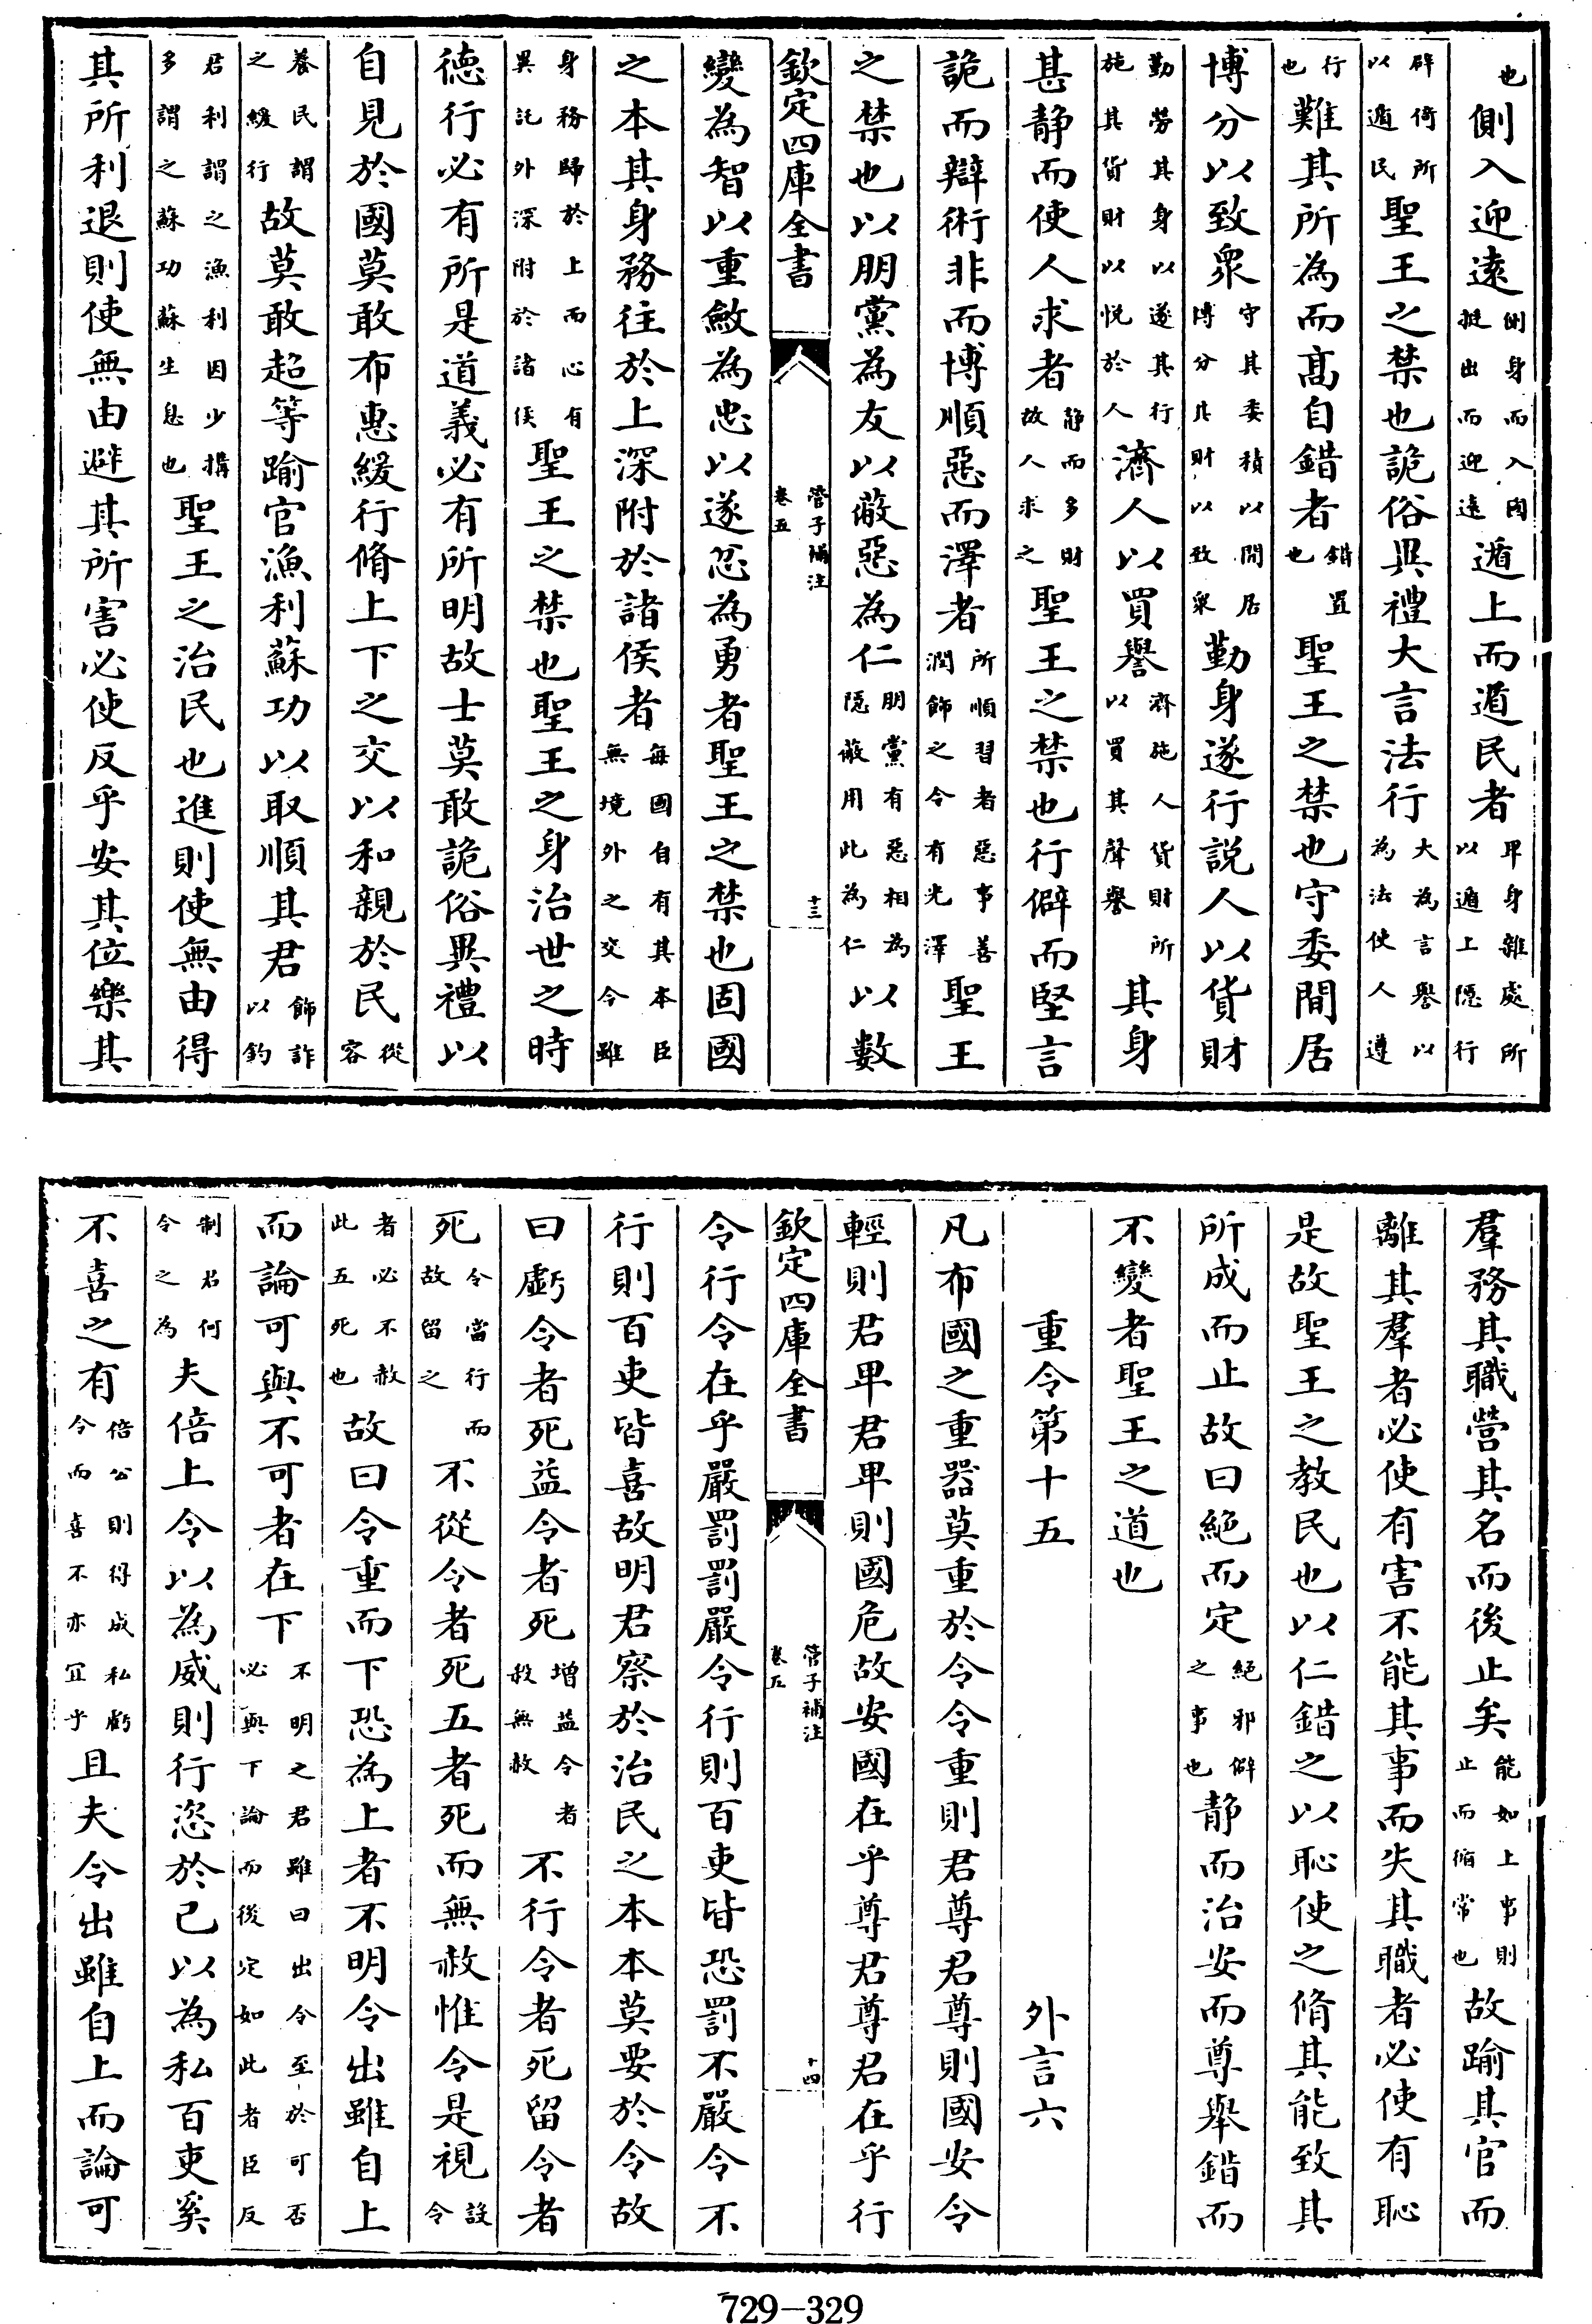 也側入迎遠側身而入國挺出而迎遠遁上而遁民者卑身雜處所以遁上隱行
辟倚所以遁民聖王之禁也詭俗異禮大言法行大為言譽以為法使人遵
行也難其所為而髙自錯者錯置也聖王之禁也守委閒居
博分以致衆守其委積以閒居博分其財以致衆勤身遂行説人以貨財
勤勞其身以遂其行施其貨財以悦於人濟人以買譽濟施人貨財所以買其聲譽其身
甚静而使人求者静而多財故人求之聖王之禁也行僻而堅言
詭而辯術非而博順惡而澤者所順習者惡事善潤飾之令有光澤聖王
之禁也以朋黨為友以蔽惡為仁朋黨有惡相為隱蔽用此為仁以數
欽定四庫全書 管子補注 卷五 十三
變為智以重斂為忠以遂忿為勇者聖王之禁也固國
之本其身務往於上深附於諸侯者每國自有其本臣無境外之交今雖
身務歸於上而心有異託外深附於諸侯聖王之禁也聖王之身治世之時
德行必有所是道義必有所明故士莫敢詭俗異禮以
自見於國莫敢布惠緩行脩上下之交以和親於民從容
養民謂之緩行故莫敢超等踰官漁利蘇功以取順其君飾詐以釣
君利謂之漁利因少搆多謂之蘇功蘇生息也聖王之治民也進則使無由得
其所利退則使無由避其所害必使反乎安其位樂其
羣務其職營其名而後止矣能如上事則止而循常也故踰其官而
離其羣者必使有害不能其事而失其職者必使有恥
是故聖王之教民也以仁錯之以恥使之脩其能致其
所成而止故曰絶而定絶邪僻之事也静而治安而尊舉錯而
不變者聖王之道也
重令第十五 外言六
凡布國之重器莫重於令令重則君尊君尊則國安令
輕則君卑君卑則國危故安國在乎尊君尊君在乎行
欽定四庫全書 管子補注 卷五 十四
令行令在乎嚴罰罰嚴令行則百吏皆恐罰不嚴令不
行則百吏皆喜故明君察於治民之本本莫要於令故
曰虧令者死益令者死增益令者赦無赦不行令者死留令者
死令當行而故留之不從令者死五者死而無赦惟令是視設令
者必不赦此五死也故曰令重而下恐為上者不明令出雖自上
而論可與不可者在下不明之君雖曰出令至於可否必與下論而後定如此者臣反
制君何令之為夫倍上令以為威則行恣於已以為私百吏奚
不喜之有倍公則得成私虧令而喜不亦宜乎且夫令出雖自上而論可
729-329